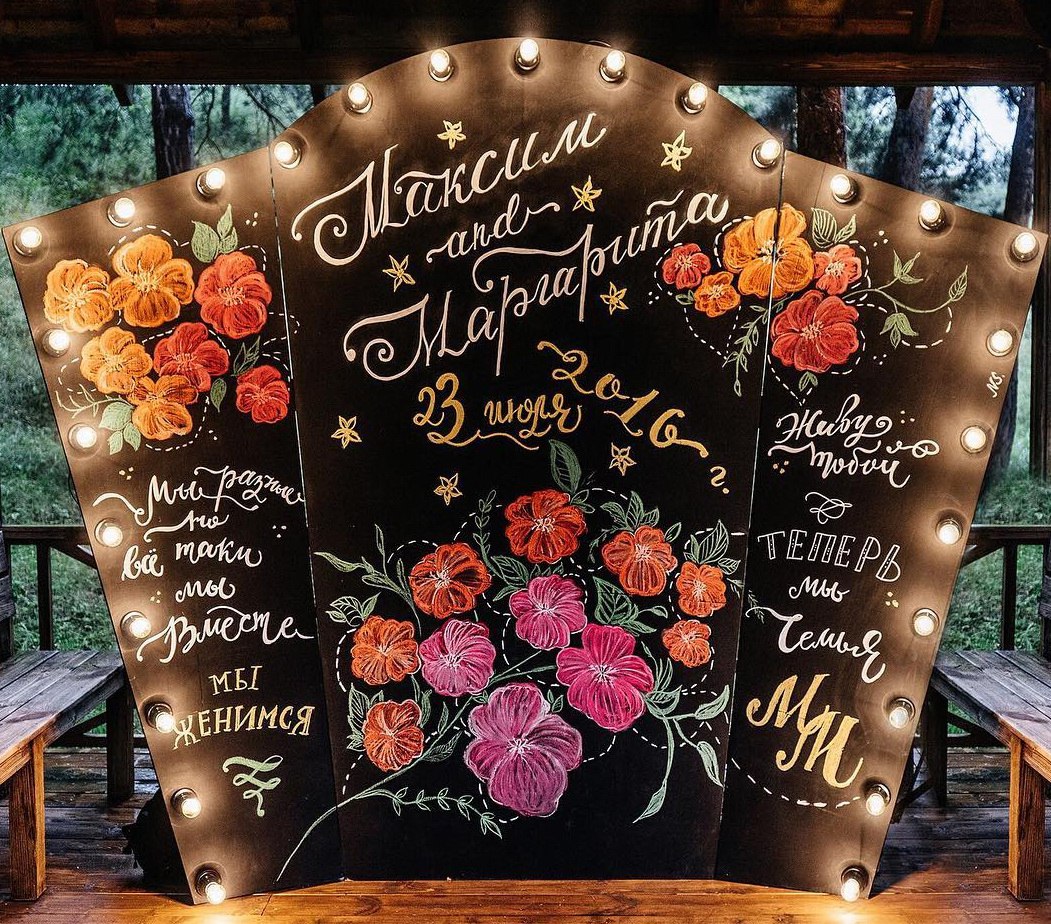 Максим
and
Маргарита
23 июля 2016 г.
Мы разные
но
всё таки
мы
Вместе
МЫ
ЖЕНИМСЯ
Живу
тобой
ТЕПЕРЬ
мы
Семья
ММ
NS.